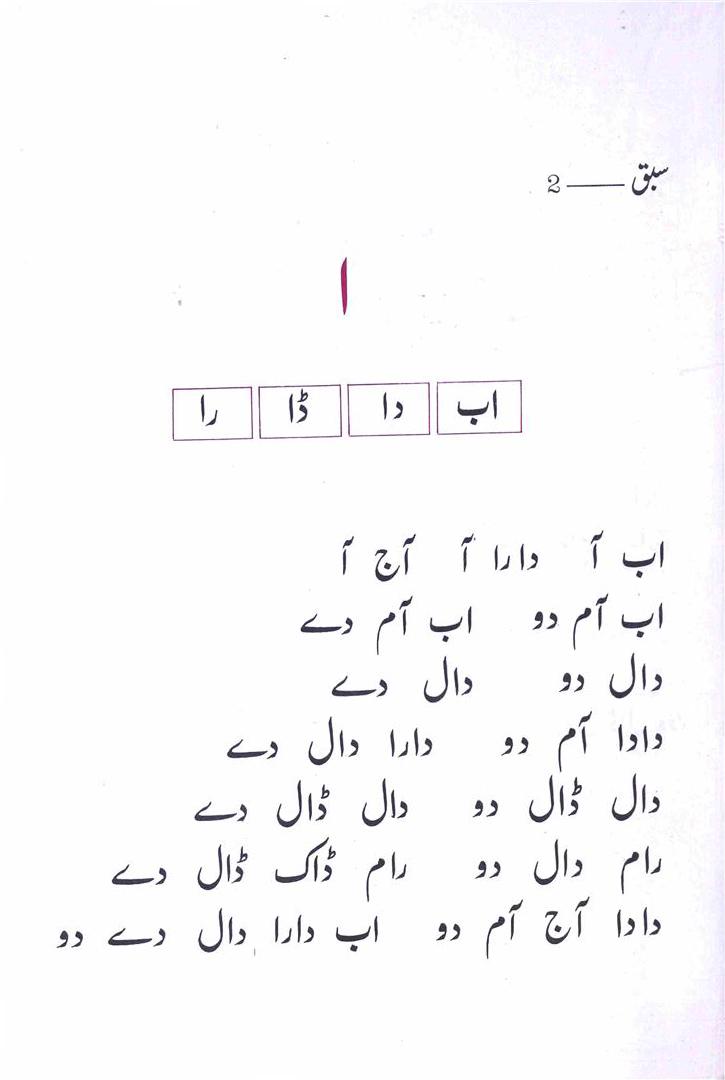 سبق —— 2
ا
اب دا ڈا را
اب آ دارا آ آج آ
اب آم دو اب آم دے
دال دو دال دے
دادا آم دو دارا دال دے
دال ڈال دو دال ڈال دے
رام دال دو رام ڈاک ڈال دے
دادا آج آم دو اب دارا دال دے دو